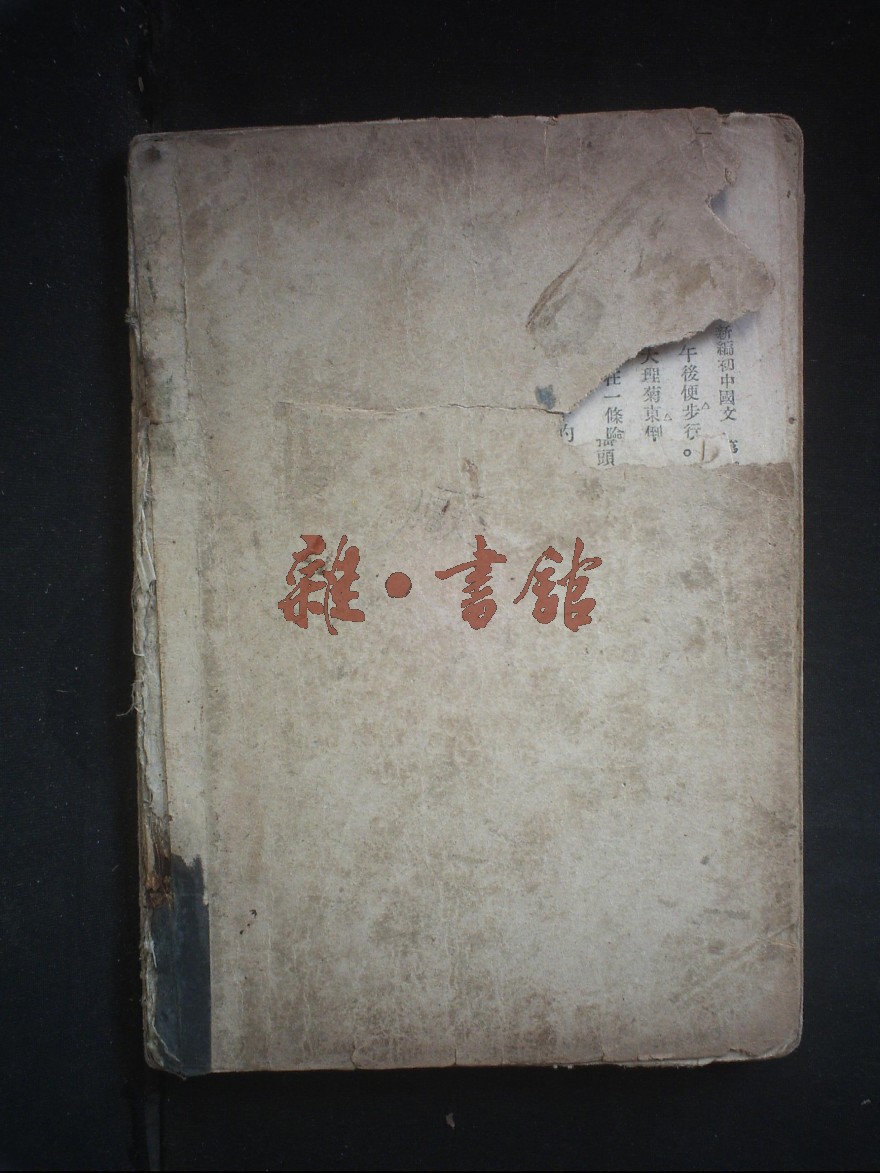 新編初中國文
午後便步行。
大理菊東倒
在一條
頭
的
雜·書館